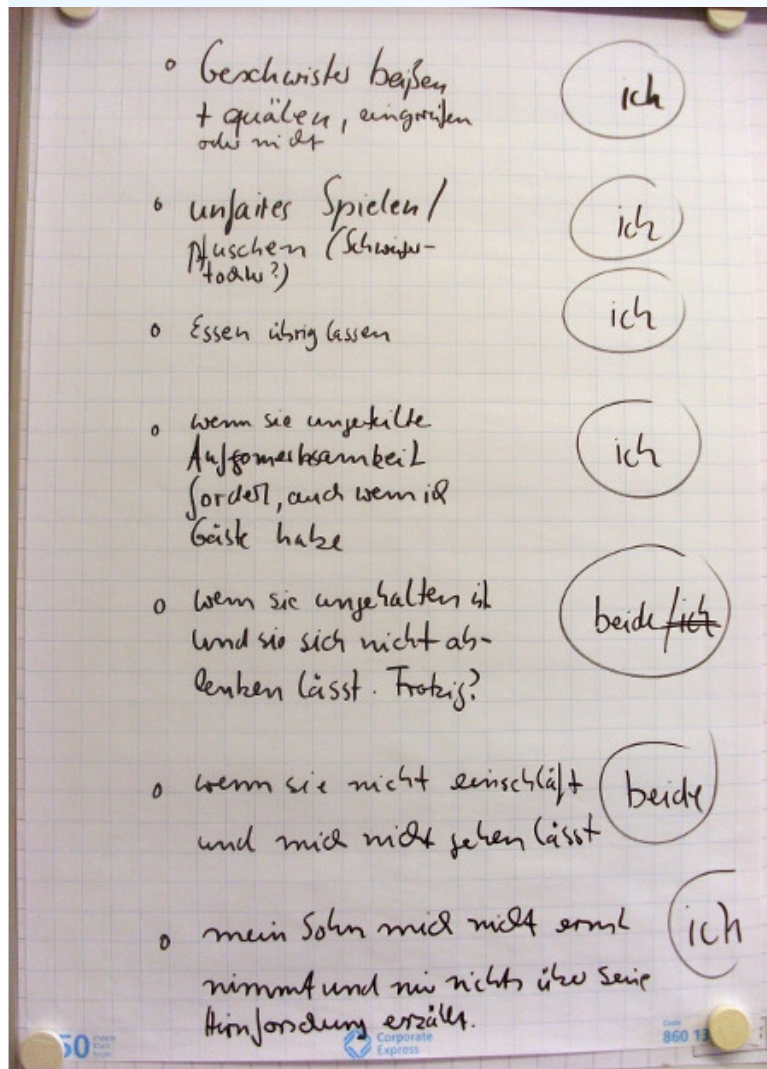 o Geschwister beißen
+ quälen, eingreifen
oder nicht
ich
o unfaires Spielen /
pfuschen (Schwieger-
tochter?)
ich
o Essen übrig lassen
ich
o wenn sie ungeteilte
Aufgomerksamkeit
fordert, auch wenn ich
Gäste habe
ich
o wenn sie ungehalten ist
und sie sich nicht ab-
lenken lässt. Trotzig?
beide/ich
o wenn sie nicht einschläft
und mich nicht gehen lässt
beide
o mein Sohn mich nicht ernst
nimmt und mir nichts über seine
Hirnforschung erzählt.
ich
50
Corporate
Express
Code
860 13